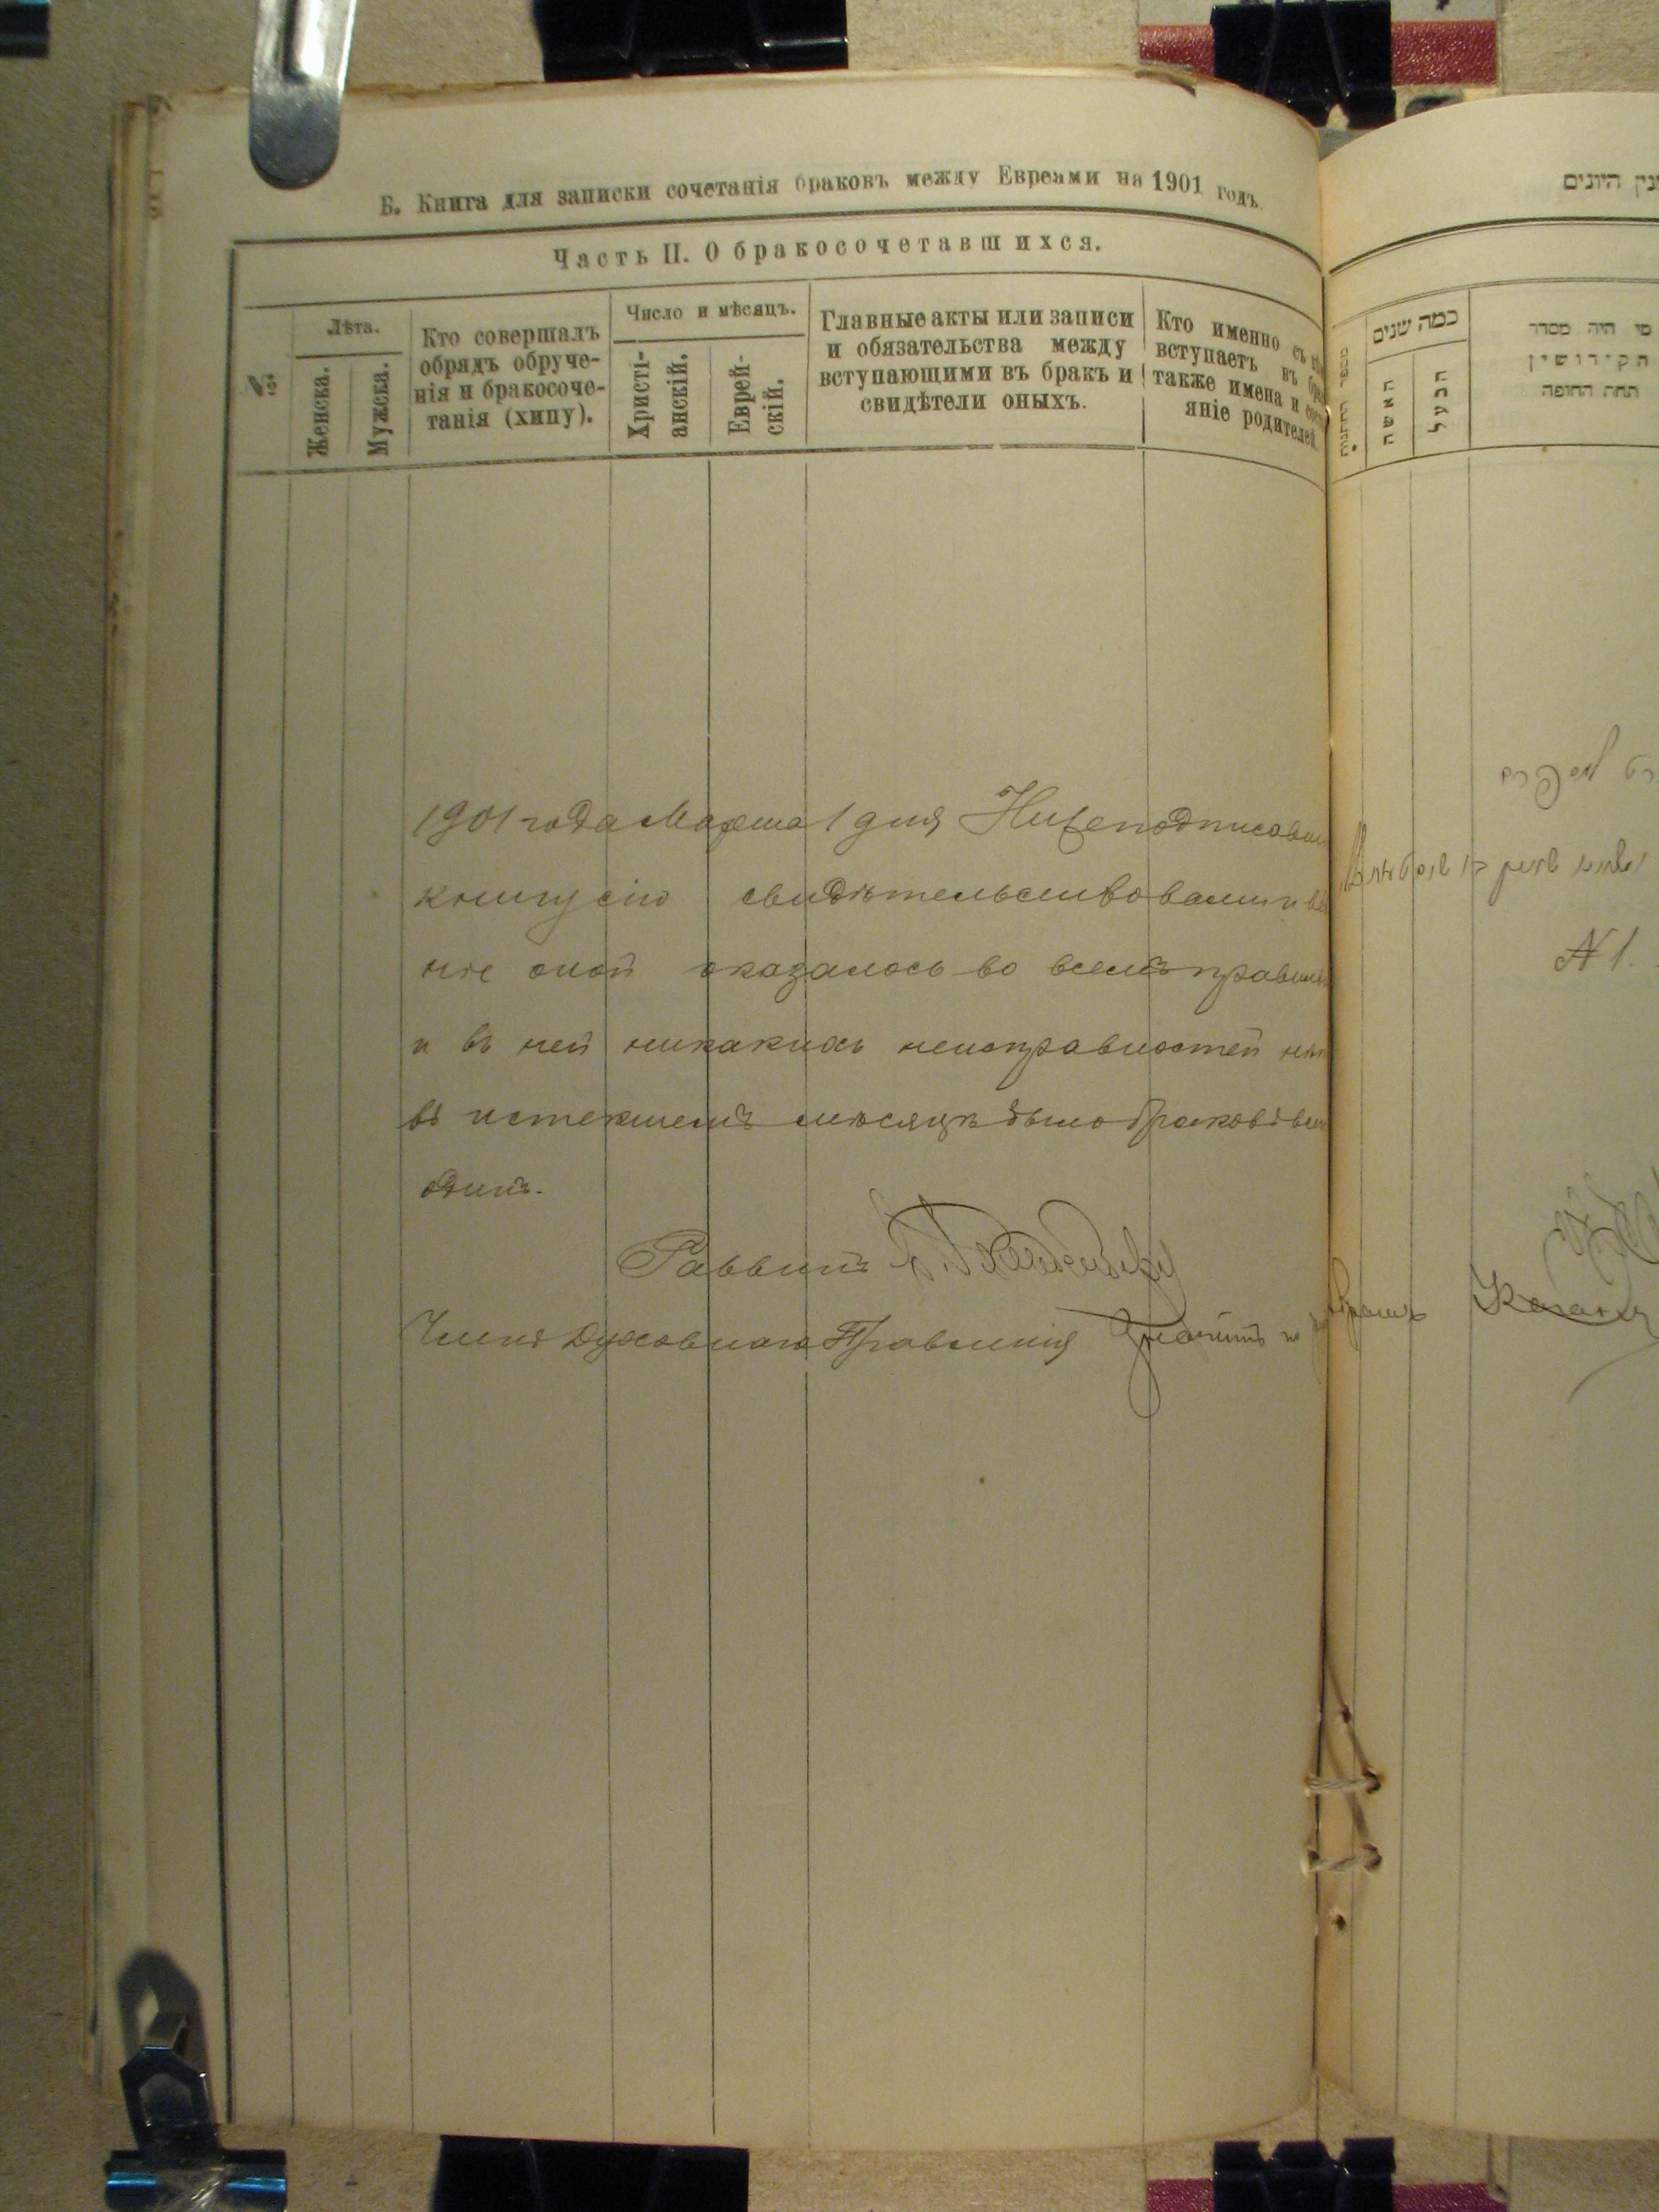 Б. Книга для записки сочетанія браковъ между Евреами на 1901 годъ.
Часть II. О бракосочетавшихся.
№
Лѣта.
Женска.
Мужска.
Кто совершалъ
обрядъ обруче-
нія и бракосоче-
танія (хипу).
Число и мѣсяцъ.
Христі-
анскій.
Еврей-
скій.
Главные акты или записи
и обязательства между
вступающими въ бракъ и
свидѣтели оныхъ.
Кто именно съ
вступаетъ въ
также имена и
яніе родителей
1901 года Марта 1 дня Нижеподписавш
книгу сію свидѣтельствовали и
ніе оной оказалось во всемъ правиль
и въ ней никакихъ неисправностей нѣт
въ истекшемъ мѣсяцѣ было браковъ всего
одинъ.
Раввинъ
Члены Духовнаго Правленія
היונים
כמה שנים
האשה
הבעל
מי היה מסדר
הקידושין
תחת החופה
N 1.